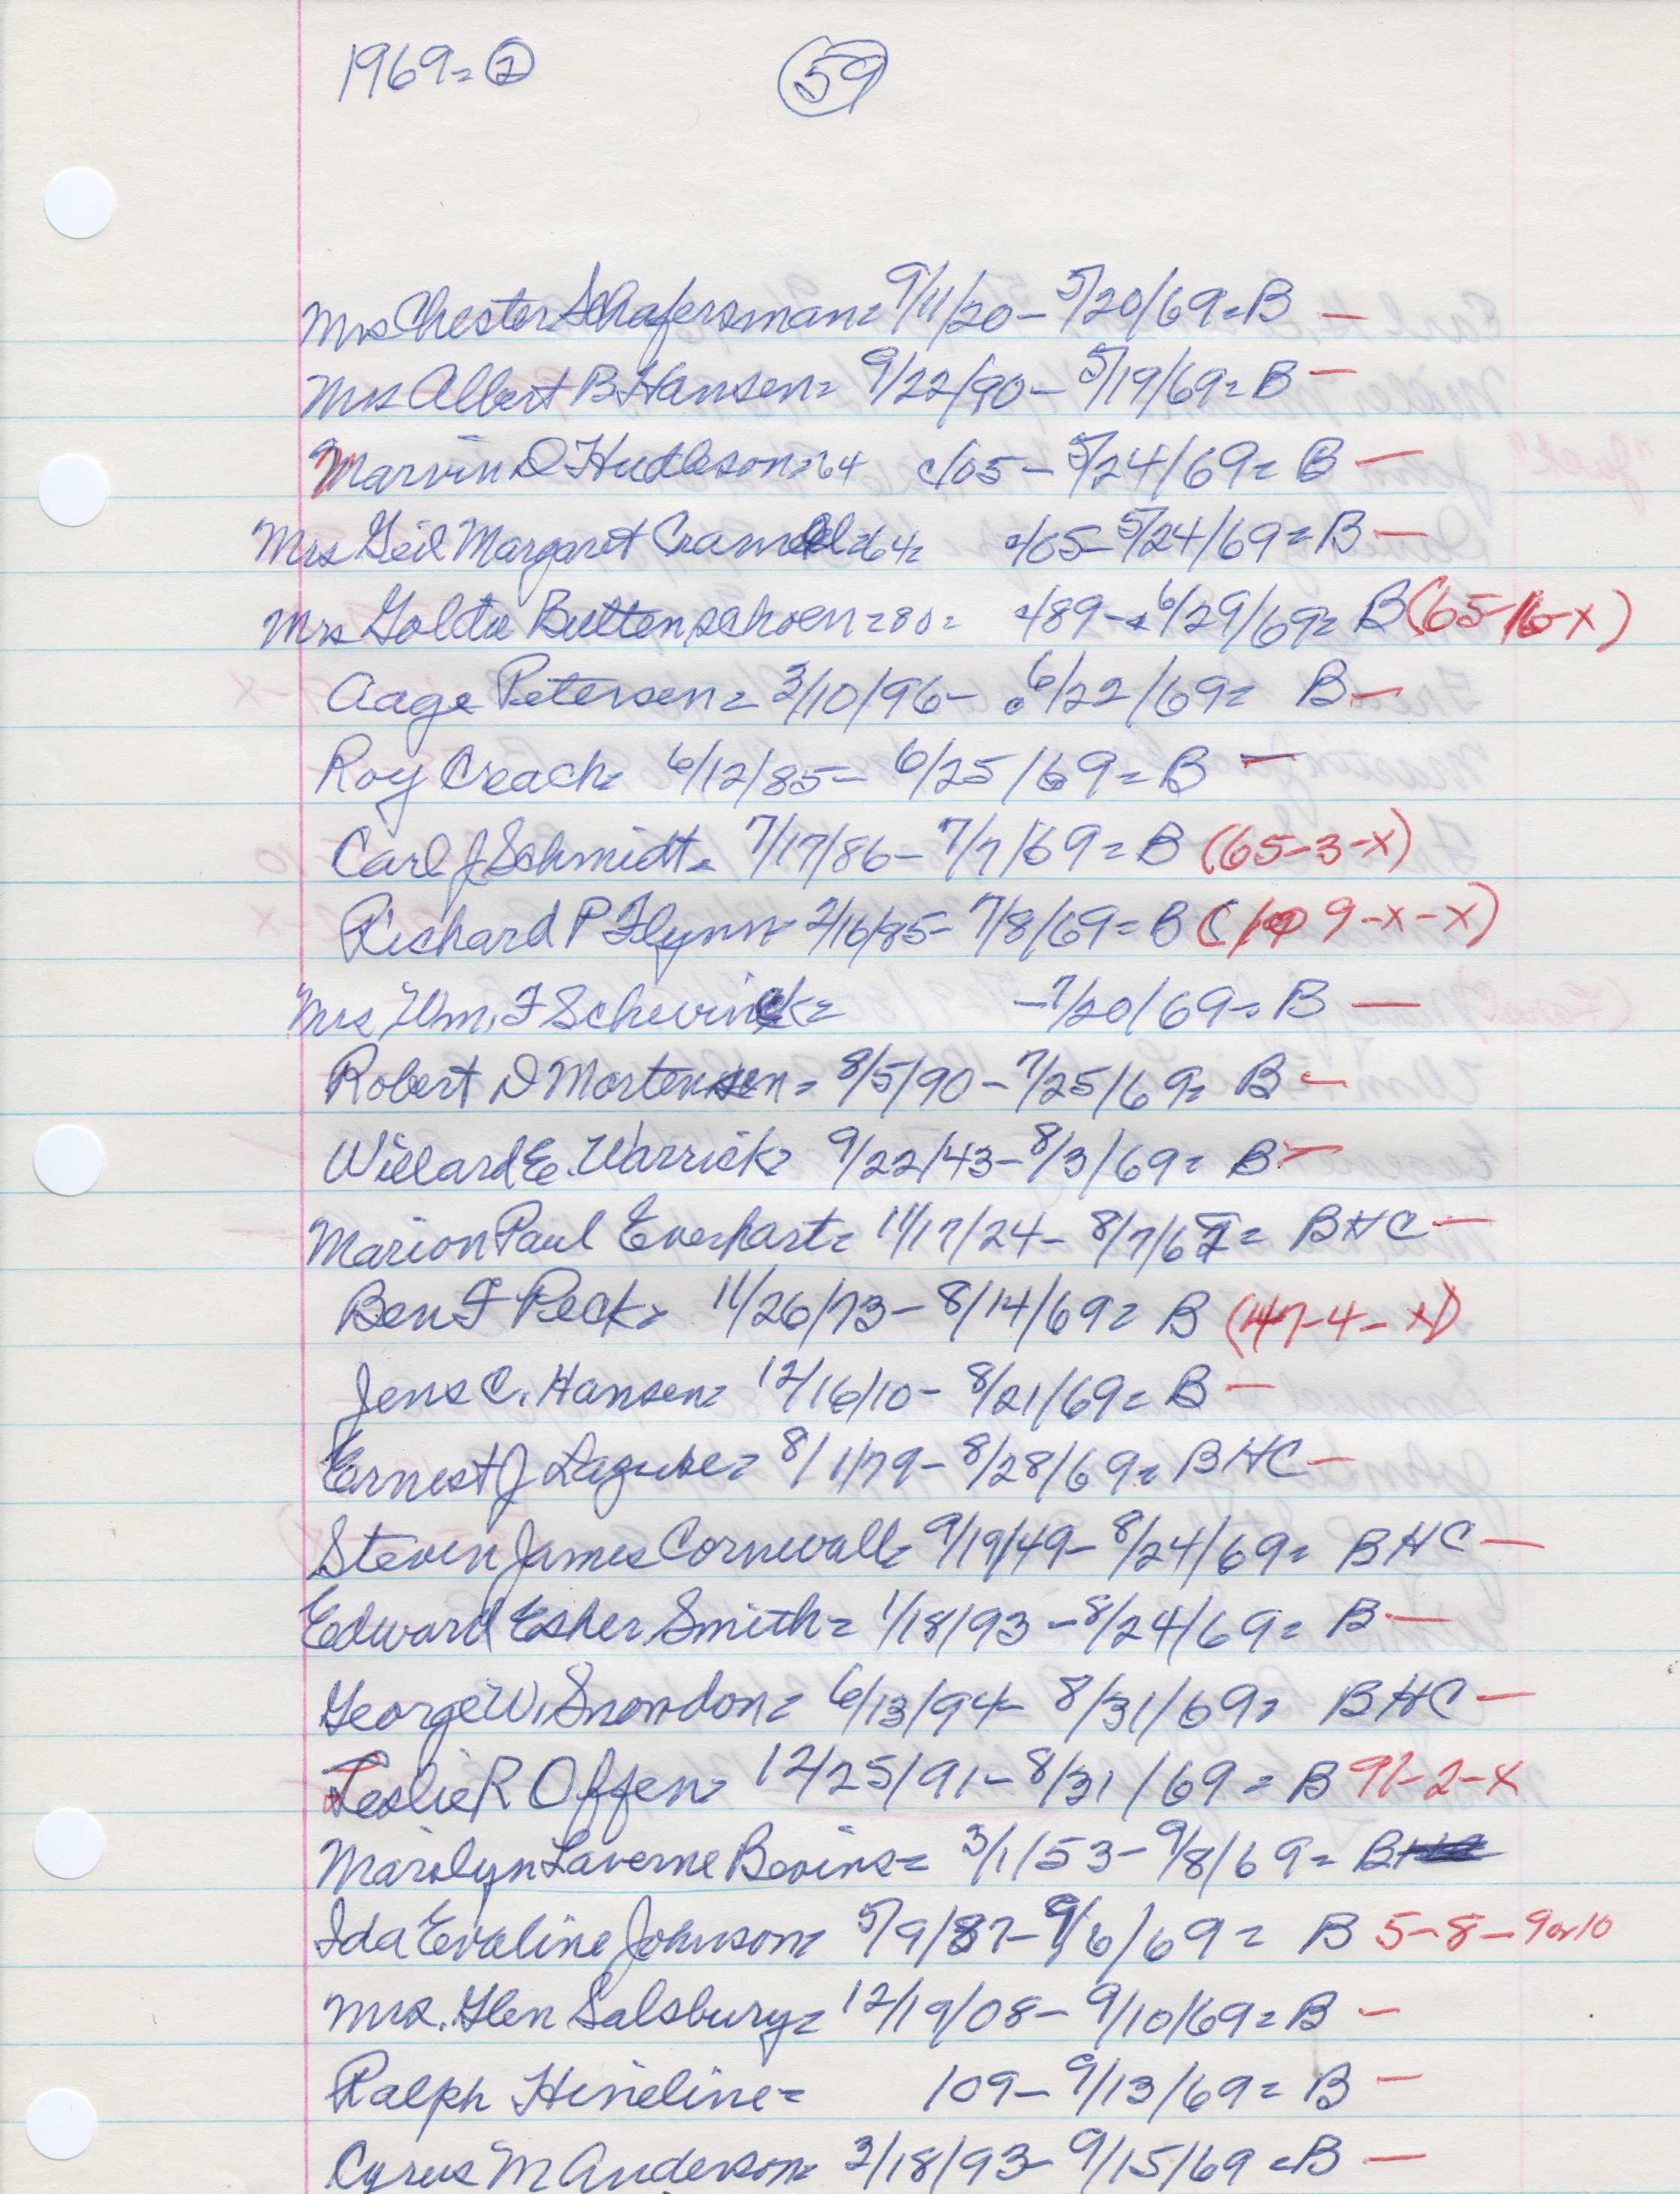 1969= ② 59
Mrs Chester Schafersman= 9/11/20- 5/20/69=B —
Mrs Albert B Hansen= 9/22/90- 5/19/69= B —
Marvin D Hudleson=64 c/05- 5/24/69= B —
Mrs Geil Margaret =64= c/05- 5/24/69= B —
Mrs Golda Buttenschoen=80= c/89- 6/29/69= B (65-16-x)
Aage Petersen= 3/10/96- 6/22/69= B —
Roy Creach= 6/12/85- 6/25/69= B —
Carl J Schmidt= 7/17/86- 7/7/69= B (65-3-x)
Richard P Flynn= 2/16/85- 7/8/69= B ( 9-x-x)
Mrs Wm. F Schwinck= -7/20/69= B —
Robert D Mortensen= 8/5/90- 7/25/69= B —
Willard E. Warrick= 9/22/43- 8/3/69= B —
Marion Paul Everhart= 11/17/24- 8/7/67= BHC —
Ben F Peck= 11/26/73- 8/14/69= B (47-4-x)
Jens C. Hansen= 12/16/10- 8/21/69= B —
Ernest J = 8/1/79- 8/28/69= BHC —
Steven James Cornwall= 9/19/49- 8/24/69= BHC —
Edward Esher Smith= 1/18/93- 8/24/69= B —
George W. Snowdon= 6/13/94- 8/31/69= BHC —
Leslie R Offen= 12/25/91- 8/31/69= B 91-2-x
Marilyn Laverne Bevins= 3/1/53- 9/8/69= B
Ida Evaline Johnson= 5/9/87- 9/6/69= B 5-8-9or10
Mrs. Glen Salsbury= 12/19/08- 9/10/69= B —
Ralph Hineline= 109- 9/13/69= B —
Cyrus M Anderson= 3/18/93- 9/15/69=B —